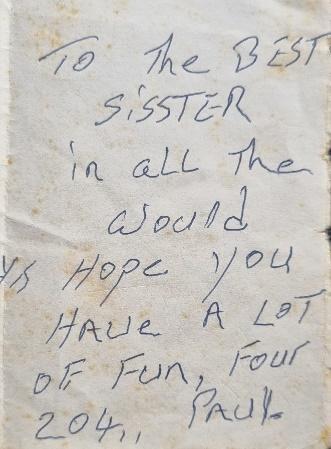 To The BEST
SiSSTER
in all The
would
Hope you
HAVE A LOT
OF Fun, Four
204,, PAUL.